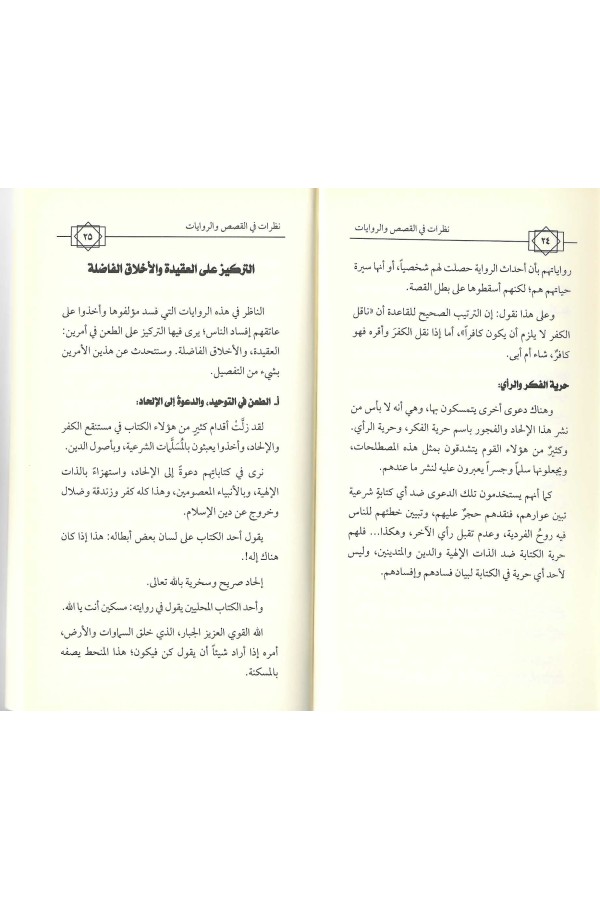 نظرات في القصص والروايات
٢٤
رواياتهم بأن أحداث الرواية حصلت لهم شخصياً، أو أنها سيرة
حياتهم هم؛ لكنهم أسقطوها على بطل القصة.
وعلى هذا نقول: إن الترتيب الصحيح للقاعدة أن «ناقل
الكفر لا يلزم أن يكون كافراً»، أما إذا نقل الكفرَ وأقره فهو
كافرٌ، شاء أم أبى.
حرية الفكر والرأي:
وهناك دعوى أخرى يتمسكون بها، وهي أنه لا بأس من
نشر هذا الإلحاد والفجور باسم حرية الفكر، وحرية الرأي.
وكثيرٌ من هؤلاء القوم يتشدقون بمثل هذه المصطلحات،
ويجعلونها سلماً وجسراً يعبرون عليه لنشر ما عندهم.
كما أنهم يستخدمون تلك الدعوى ضد أي كتابةٍ شرعية
تبين عوارهم، فنقدهم حجرٌ عليهم، وتبيين خطئهم للناس
فيه روحُ الفردية، وعدم تقبل رأي الآخر، وهكذا... فلهم
حرية الكتابة ضد الذات الإلهية والدين والمتدينين، وليس
لأحد أي حرية في الكتابة لبيان فسادهم وإفسادهم.
نظرات في القصص والروايات
٢٥
التركيز على العقيدة والأخلاق الفاضلة
الناظر في هذه الروايات التي فسد مؤلفوها وأخذوا على
عاتقهم إفساد الناس؛ يرى فيها التركيز على الطعن في أمرين:
العقيدة، والأخلاق الفاضلة. وسنتحدث عن هذين الأمرين
بشيء من التفصيل.
أ- الطعن في التوحيد، والدعوةُ إلى الإلحاد:
لقد زلَّتْ أقدام كثيرٍ من هؤلاء الكتاب في مستنقع الكفر
والإلحاد، وأخذوا يعبثون بالمُسلَّمات الشرعية، وبأصول الدين.
نرى في كتاباتهم دعوةً إلى الإلحاد، واستهزاءً بالذات
الإلهية، وبالأنبياء المعصومين، وهذا كله كفر وزندقة وضلال
وخروج عن دين الإسلام.
يقول أحد الكتاب على لسان بعض أبطاله: هذا إذا كان
هناك إله!.
إلحاد صريح وسخرية بالله تعالى.
وأحد الكتاب المحليين يقول في روايته: مسكين أنت يا الله.
الله القوي العزيز الجبار، الذي خلق السماوات والأرض،
أمره إذا أراد شيئاً أن يقول كن فيكون؛ هذا المنحط يصفه
بالمسكنة.